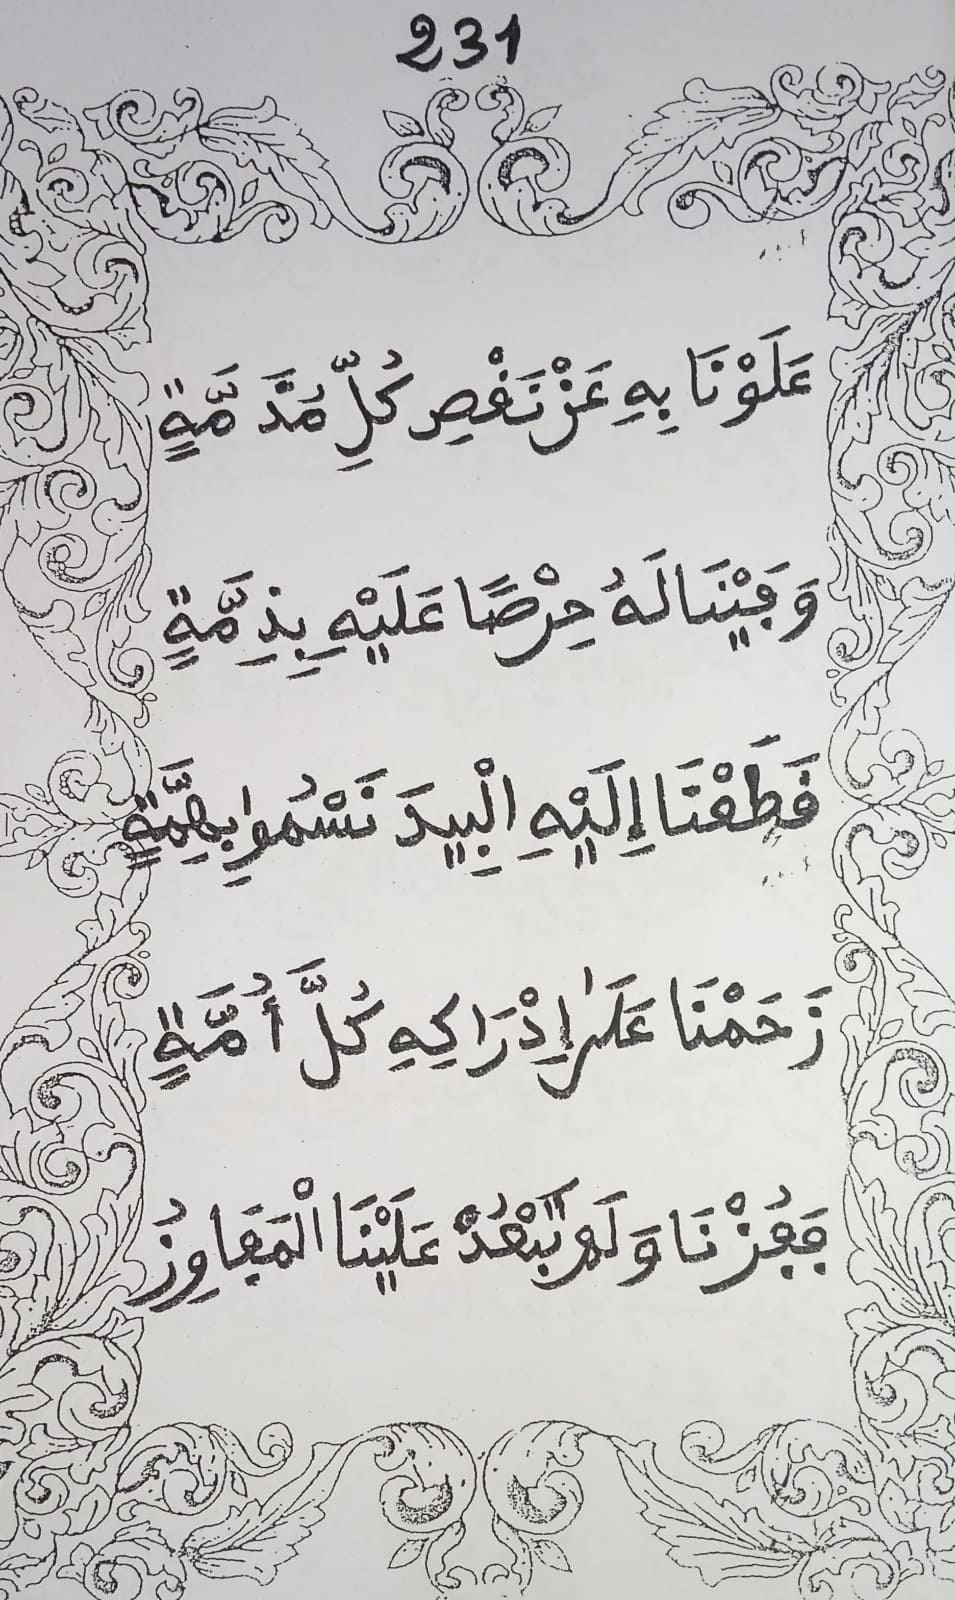 231
عَلَوْنَا بِهِ عَنْ نَقْصِ كُلِّ مُذَمَّةٍ
وَفَيْنَا لَهُ حِرْصًا عَلَيْهِ بِذِمَّةٍ
قَطَعْنَا إِلَيْهِ الْبِيدَ نَسْمُوا بِهِمَّةٍ
زَحَمْنَا عَلَىٰ إِدْرَاكِهِ كُلَّ أُمَّةٍ
فَفُزْنَا وَلَمْ يَبْعُدْ عَلَيْنَا الْمَفَاوِزُ